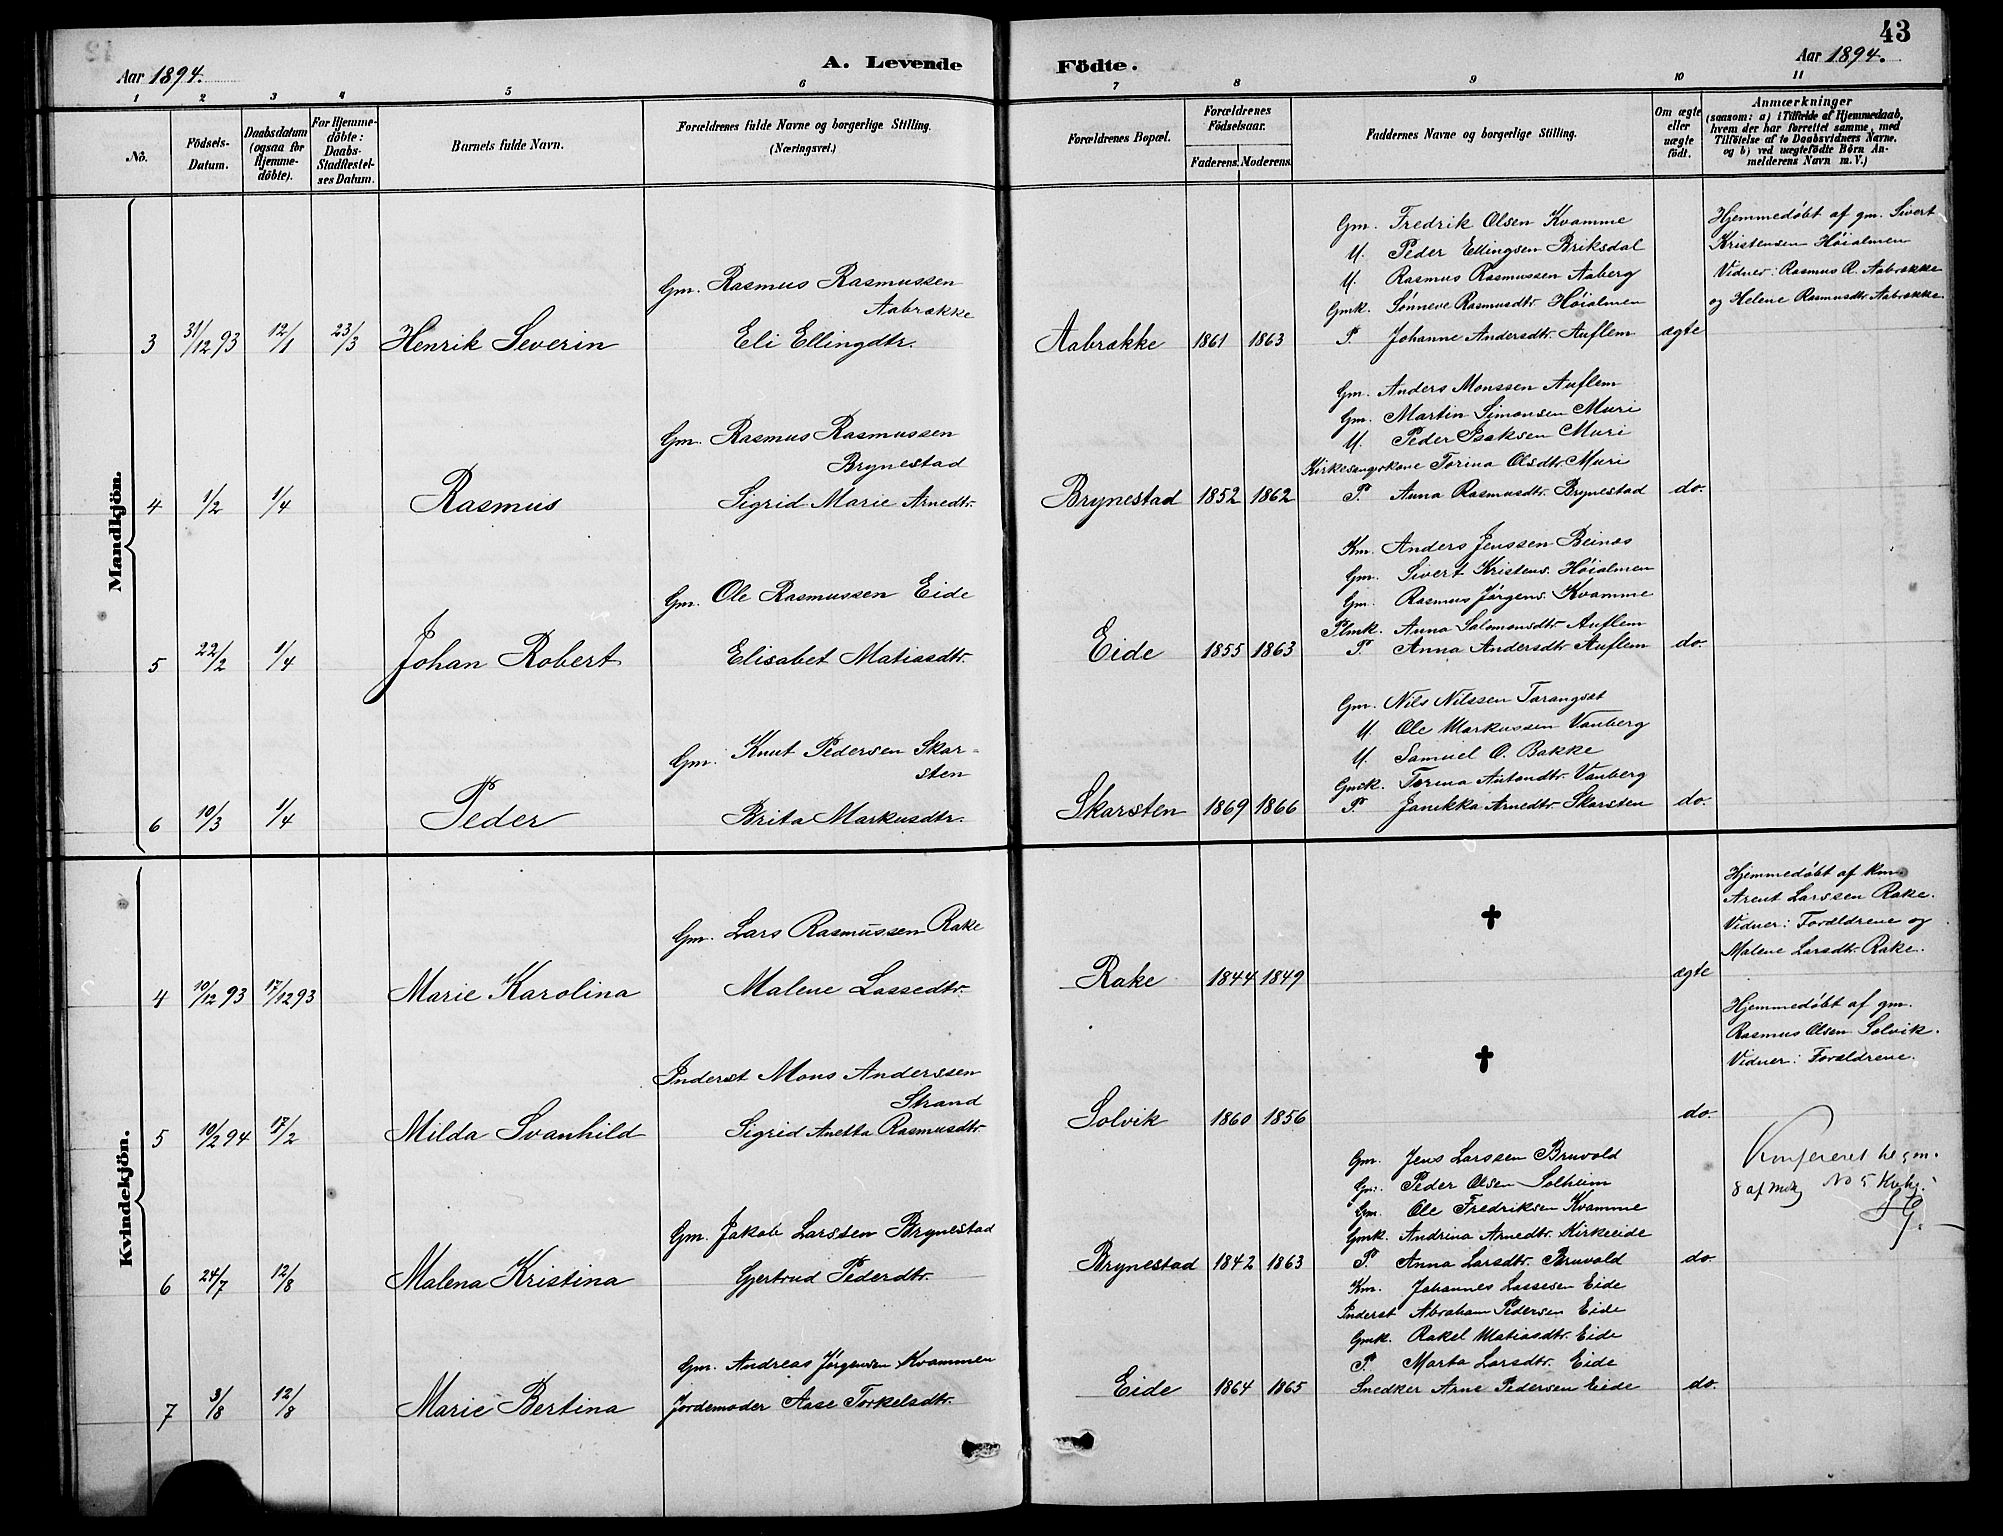 43
Aar 1894.
A. Levende
Födte.
Aar 1894.
1 2 3 4 5 6 7 8 9 10 11
No.
Födsels-
Datum.
Daabsdatum
(ogsaa for
Hjemme-
döbte).
For Hjemme-
döbte:
Daabs-
Stadfæstel-
ses Datum.
Barnets fulde Navn.
Forældrenes fulde Navne og borgerlige Stilling.
(Næringsvei.)
Forældrenes Bopæl.
Forældrenes
Födselsaar.
Faderens. Moderens.
Faddernes Navne og borgerlige Stilling.
Om ægte
eller
uægte
födt.
Anmærkninger
(saasom: a) i Tilfælde af Hjemmedaab,
hvem der har forrettet samme, med
Tilföielse af to Daabsvidners Navne,
og b) ved uægtefödte Börn An-
melderens Navn m. V.)
Mandkjön.
3 31/12 93 12/1 23/3 Henrik Severin
Gm. Rasmus Rasmussen
Aabrække
Eli Ellingdtr.
Aabrække 1861 1863
Gm. Fredrik Olsen Kvamme
U. Peder Ellingsen Briksdal
U. Rasmus Rasmussen Aaberg
Gmk. Sønneve Rasmusdtr. Höialmen
P. Johanne Andersdtr. Auflem
ægte
Hjemmedøbt af gm. Sivert
Kristensen Höialmen
Vidner: Rasmus R. Aabrække
og Helene Rasmusdtr. Aabrække.
4 1/2 1/4 Rasmus
Gm. Rasmus Rasmussen
Brynestad
Sigrid Marie Arnedtr.
Brynestad 1852 1862
Gm. Anders Monssen Auflem
Gm. Martin Simonsen Muri
U. Peder Isaksen Muri
Kirkesangerkone Torina Olsdtr. Muri
P. Anna Rasmusdtr. Brynestad
do.
5 22/2 1/4 Johan Robert
Gm. Ole Rasmussen Eide
Elisabet Matiasdtr.
Eide 1855 1863
Km. Anders Jenssen Beinnes
Gm. Sivert Kristens. Höialmen
Gm. Rasmus Jørgens. Kvamme
Plmk. Anna Salomonsdtr. Auflem
P. Anna Andersdtr. Auflem
do.
6 10/3 1/4 Peder
Gm. Knut Pedersen Skar-
sten
Brita Markusdtr.
Skarsten 1869 1866
Gm. Nils Nilssen Tarangset
U. Ole Markussen Vanberg
U. Samuel O. Bakke
Gmk. Torina Antondtr. Vanberg
P. Janikka Arnedtr. Skarsten
do.
Kvindekjön.
4 10/12 93 17/12 93 Marie Karolina
Gm. Lars Rasmussen Rake
Malene Lassedtr.
Rake 1844 1849
✝
ægte
Hjemmedøbt af km.
Arent Larssen Rake.
Vidner: Forældrene og
Malene Larsdtr. Rake.
5 10/2 94 17/2 Milda Svanhild
Inderst Mons Anderssen
Strand
Sigrid Anetta Rasmusdtr.
Solvik 1860 1856
✝
do.
Hjemmedøbt af gm.
Rasmus Olsen Solvik.
Vidner: Forældrene.
6 24/7 12/8 Malena Kristina
Gm. Jakob Larssen Brynestad
Gjertrud Pederdtr.
Brynestad 1842 1863
Gm. Jens Larssen Bruvold
Gm. Peder Olsen Solheim
Gm. Ole Fredriksen Kvamme
Gmk. Andrina Arnedtr. Kirkeeide
P. Anna Larsdtr. Bruvold
do.
Konfereret
8 af Mdkj No 5 Kvkj.
7 3/8 12/8 Marie Bertina
Gm. Andreas Jørgensen Kvammen
Jordemoder Aase Torkelsdtr.
Eide 1864 1865
Km. Johannes Lassesen Eide
Inderst Abraham Pedersen Eide
Gmk. Rakel Matiasdtr. Eide
P. Marta Larsdtr. Eide
Snedker Arne Pedersen Eide
do.